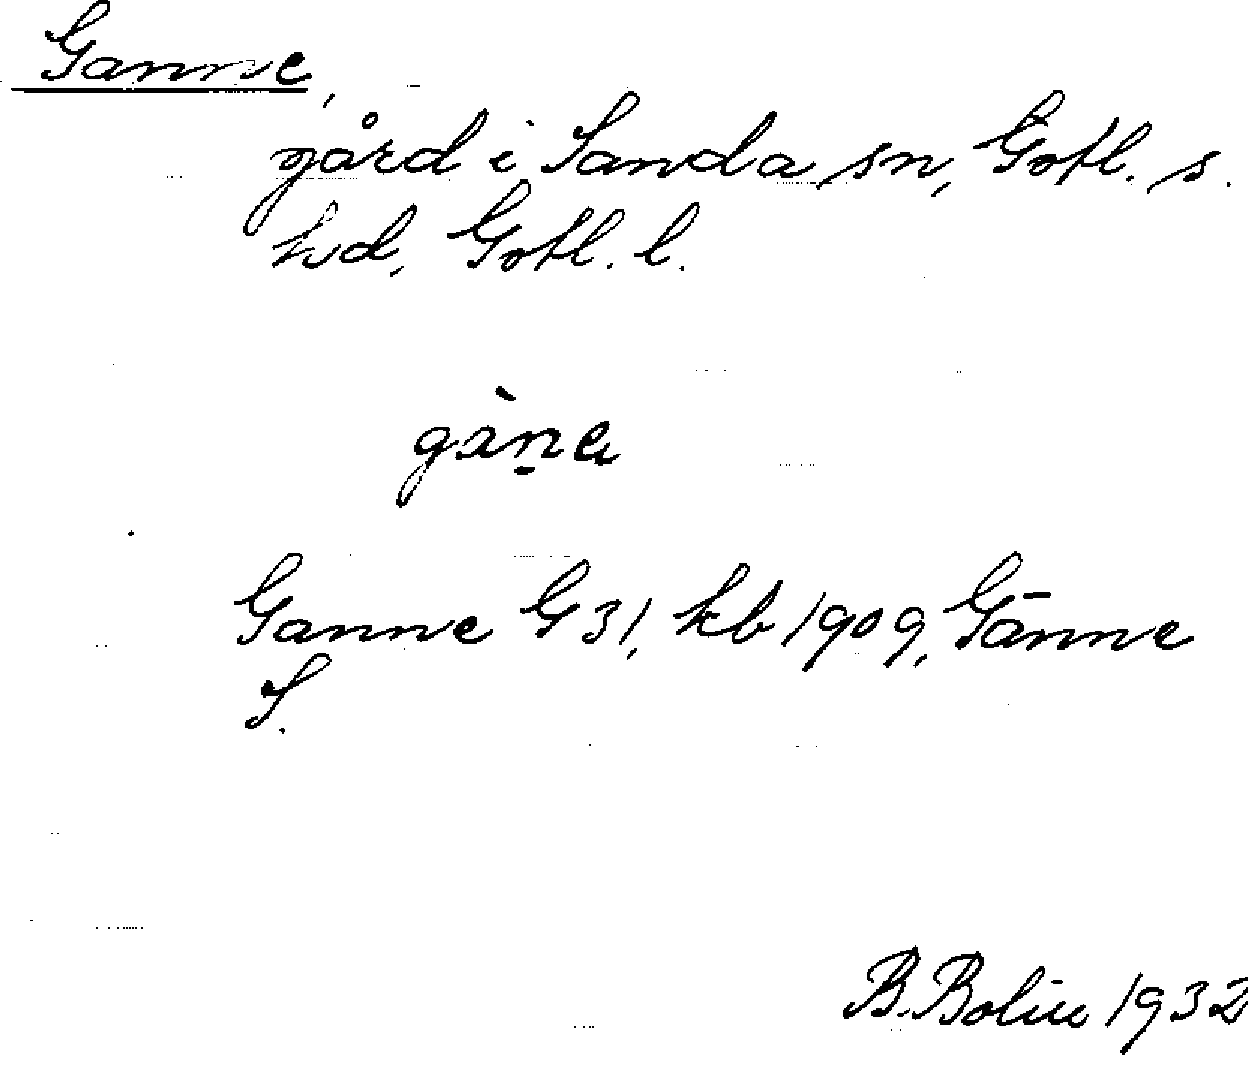 Ganne,
gård i Sanda sn, Gotl. s.
hd, Gotl. l.
gàṉe
Ganne G 31, kb 1909, Gänne
S.
B. Bolin 1932